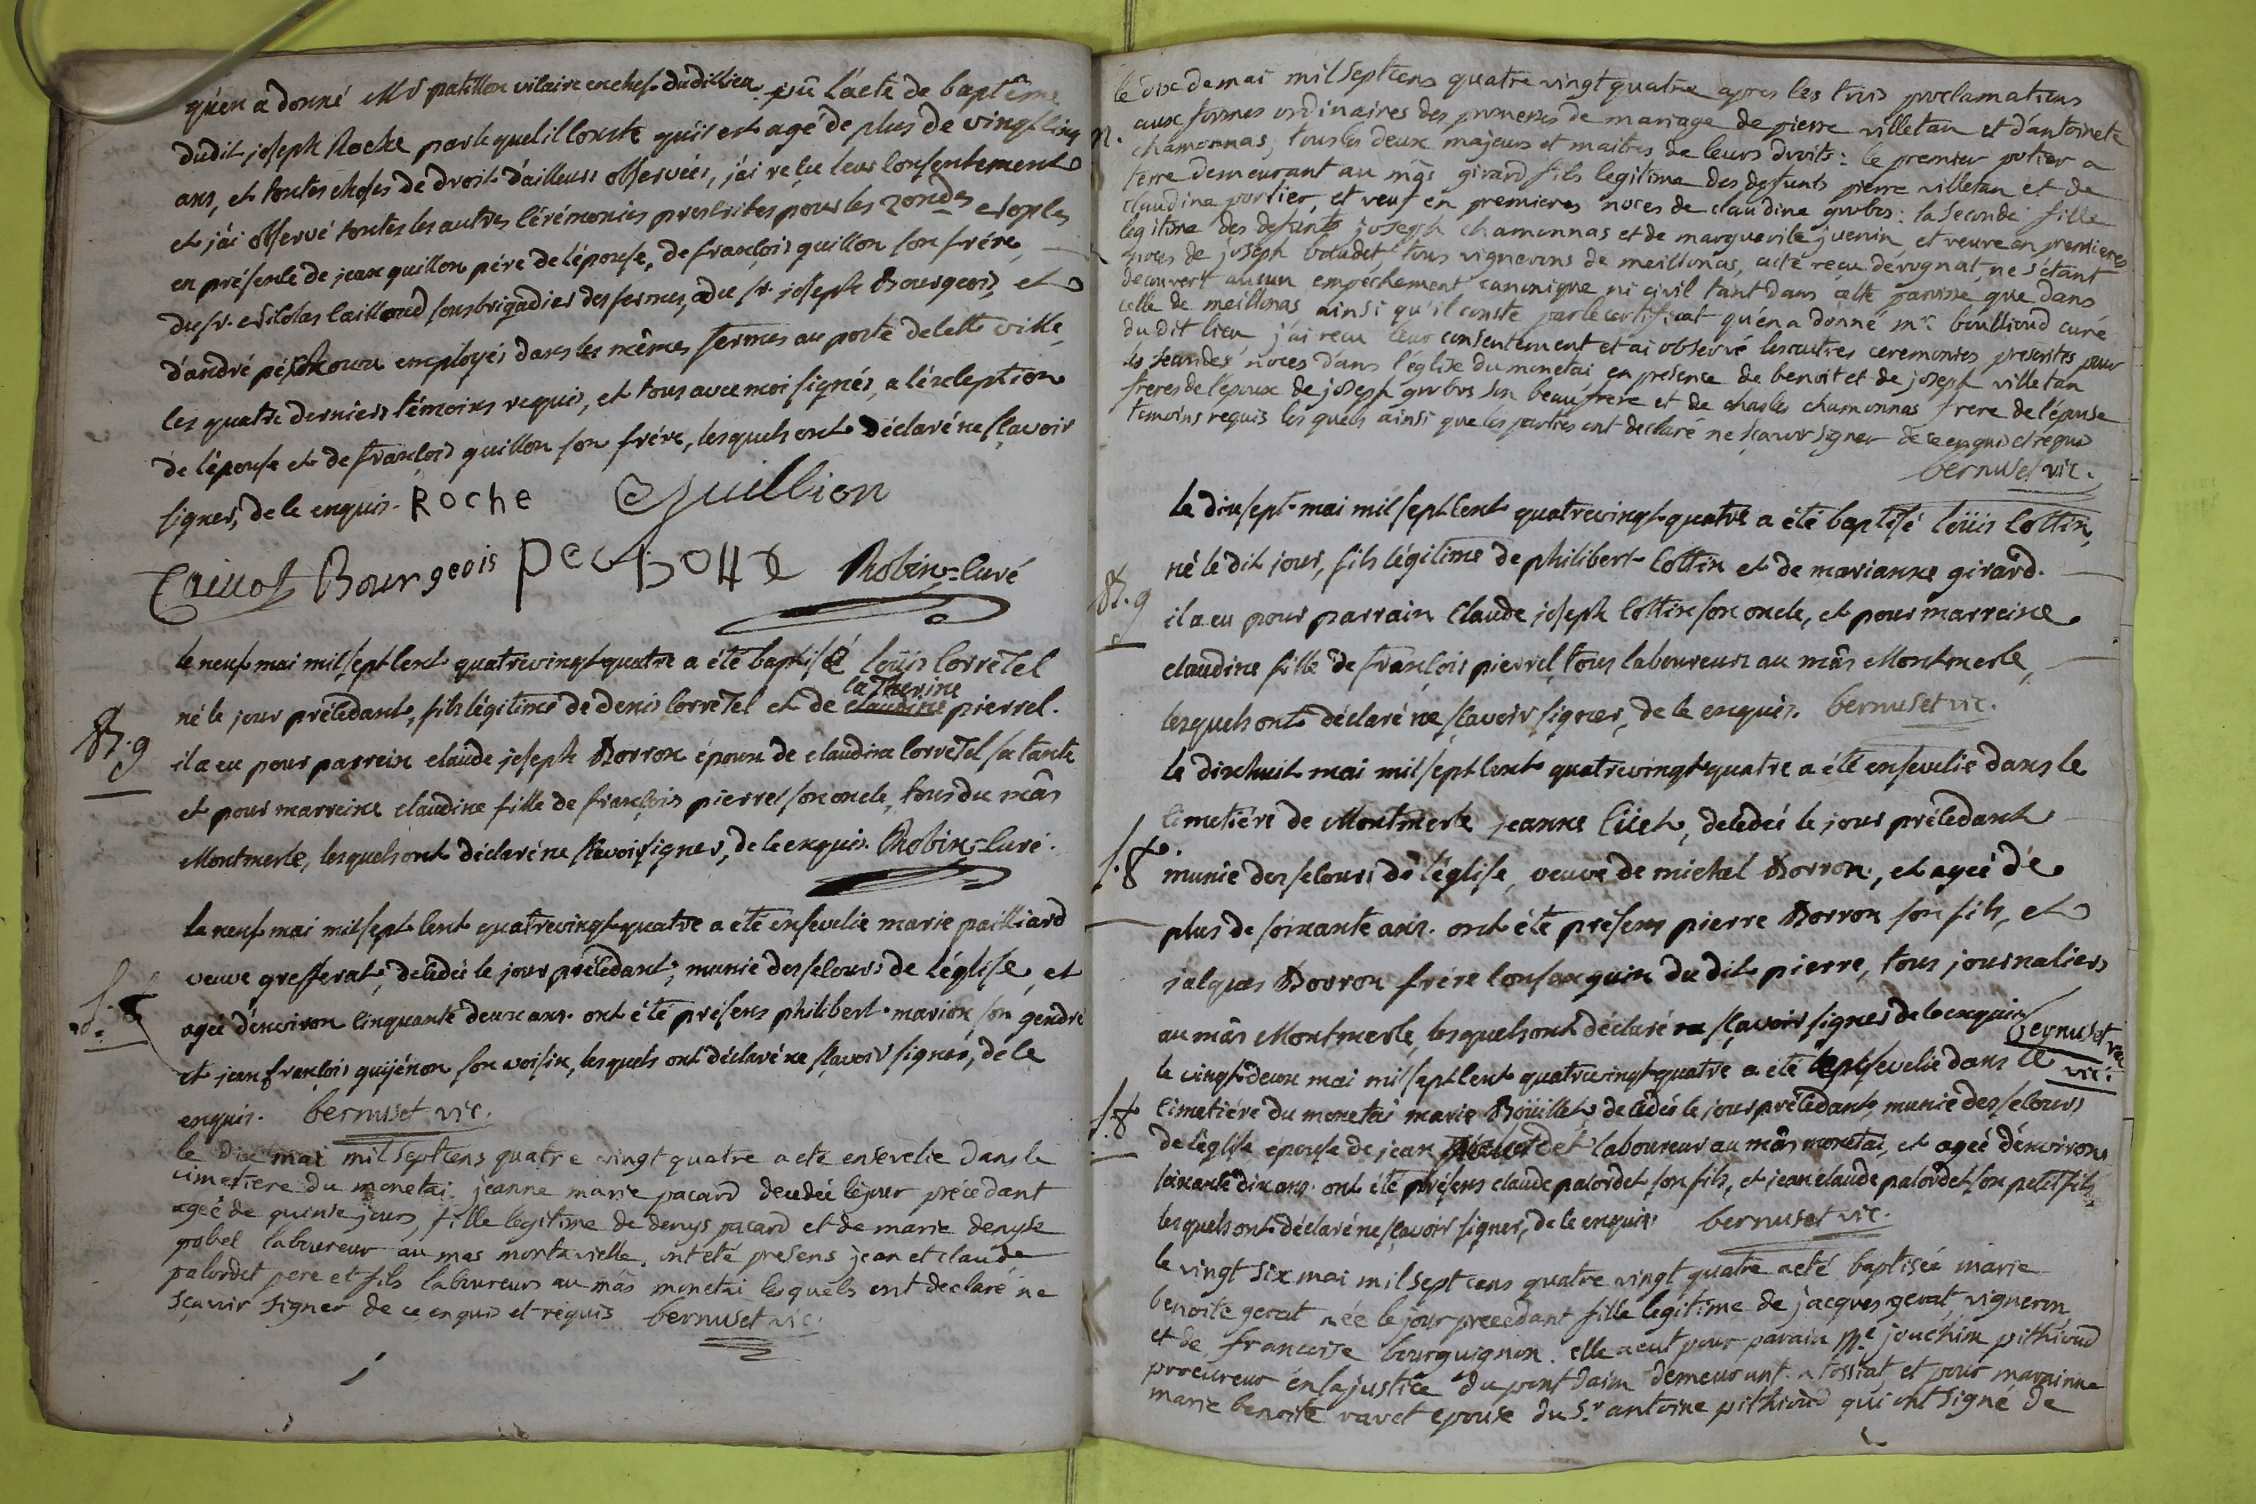 qu'en a donné Mr patillon vicaire en chef dudit lieu, vu l'acte de baptême
dudit joseph Roche par lequel il conste qu'il est agé de plus de vingt cinq
ans, et toutes choses de droit d'ailleurs observées, j'ai reçu leur consentement
et j'ai observé toutes les autres cérémonies prescrites pour les
en présence de jean guillon pére de l'épouse, de françois guillon son frére,
du sr. Nicolas caillaud sousbrigadier des fermes, du sr. joseph Bourgeois, et
d'andré employés dans les mêmes fermes au poste de cette ville,
les quatre derniers témoins requis, et tous avec moi signés, a l'éxception
de l'épouse et de françois guillon son frére, lesquels ont déclaré ne sçavoir
signer, de ce enquis. Roche Guillion
Bourgeois Robin=curé
le neuf mai mil sept cent quatrevingt-quatre a été baptisé loüis Corretel
catherine
né le jour précedant, fils légitime de denis Corretel et de claudine pierrel.
B. g
il a eu pour parrein claude joseph Borron époux de claudine Corretel sa tante
et pour marreine claudine fille de françois pierrel son oncle, tous du mâs
Montmerle, lesquels ont déclaré ne sçavoir signer, de ce enquis. Robin=curé.
le neuf mai mil sept cent quatrevingt-quatre a été ensevelie marie pailliard
veuve grefferat, décedée le jour précedant, munie des secours de l'église, et
S. f
agée d'environ cinquante deux ans. ont été présens philibert marion son gendre
et jean françois guijénon son voisin, lesquels ont déclaré ne sçavoir signer, de ce
enquis. bernuset vic.
le dix mai mil sept cens quatre vingt quatre a eté ensevelie dans le
cimetiere du monetai jeanne marie pacard decedée le jour précedant
agée de quinse jours, fille legitime de denys pacard et de marie denyse
gobel laboureur au mas montavielle. ont été presens jean et claude
palordet pere et fils laboureurs au mâs monetai lesquels ont declaré ne
sçavoir signer de ce enquis et requis bernuset vic.
le dix de mai mil sept cens quatre vingt quatre apres les trois proclamations
aux formes ordinaires des promesses de mariage de pierre villetan et d'antoinete
M.
chamonnas, tous les deux majeurs et maitres de leurs droits: le premier potier a
terre demeurant au mâs girard fils legitime des defunts pierre villetan et de
claudine portier et veuf en premieres noces de claudine grobos: la seconde fille
legitime des defunts joseph chamonnas et de marguerite juenin et veuve en premieres
noces de joseph boludet tous vignerons de meillonas, acte reçu dérognat, ne s'étant
decouvert aucun empéchement canonique ni civil tant dans cette paroisse que dans
celle de meillonas ainsi qu'il conste par le certificat qu'en a donné mr boullioud curé
du dit lieu j'ai recu leur consentement et ai observé les autres ceremonies prescrites pour
les secondes noces dans l'église du monetai en presence de benoit et de joseph villetan
freres de l'époux de joseph grobos son beaufrere et de charles chamonnas frere de l'épouse
temoins requis les quels ainsi que les parties ont declaré ne sçavoir signer de ce enquis et requis
bernuset vic.
le dixsept mai mil sept cent quatrevingt-quatre a été baptisé loüis Cottin,
né le dit jour, fils légitime de philibert Cottin et de marianne girard.
B. g
il a eu pour parrain Claude joseph Cottin son oncle, et pour marreine
claudine fille de françois pierrel, tous laboureurs au mâs Montmerle,
lesquels ont déclaré ne sçavoir signer, de ce enquis. bernuset vic.
le dixhuit mai mil sept cent quatrevingt-quatre a été ensevelie dans le
cimetiére de Montmerle jeanne décedée le jour précedant
S. f
munie des secours de l'église, veuve de michel Borron, et agée de
plus de soixante ans. ont été présens pierre Borron son fils, et
jacques Borron frére consanguin du dit pierre, tous journaliers
au mâs Montmerle, lesquels ont déclaré ne sçavoir signer de ce enquis bernuset vic.
le vingt-deux mai mil sept cent quatrevingt-quatre a été ensevelie dans le
S. f
cimetiére du monetai marie Boüillet, décedée le jour précedant, munie des secours
de l'église épouse de jean laboureur au mâs monetai, et agée d'environ
soixante dix ans. ont été présens claude palordet son fils, et jean claude palordet son petit fils
lesquels ont déclaré ne sçavoir signer, de ce enquis bernuset vic.
le vingt six mai mil sept cens quatre vingt quatre a eté baptisée marie
benoite gerat née le jour precedant fille legitime de jacques gerat vigneron
et de francoise bourguignon. elle a eut pour parain Me jouchim pithioud
procureur en la justice du pont d'ain demeurant a tossiat et pour marainne
marie benoite ravet epouse du Sr antoine pithioud qui ont signé de